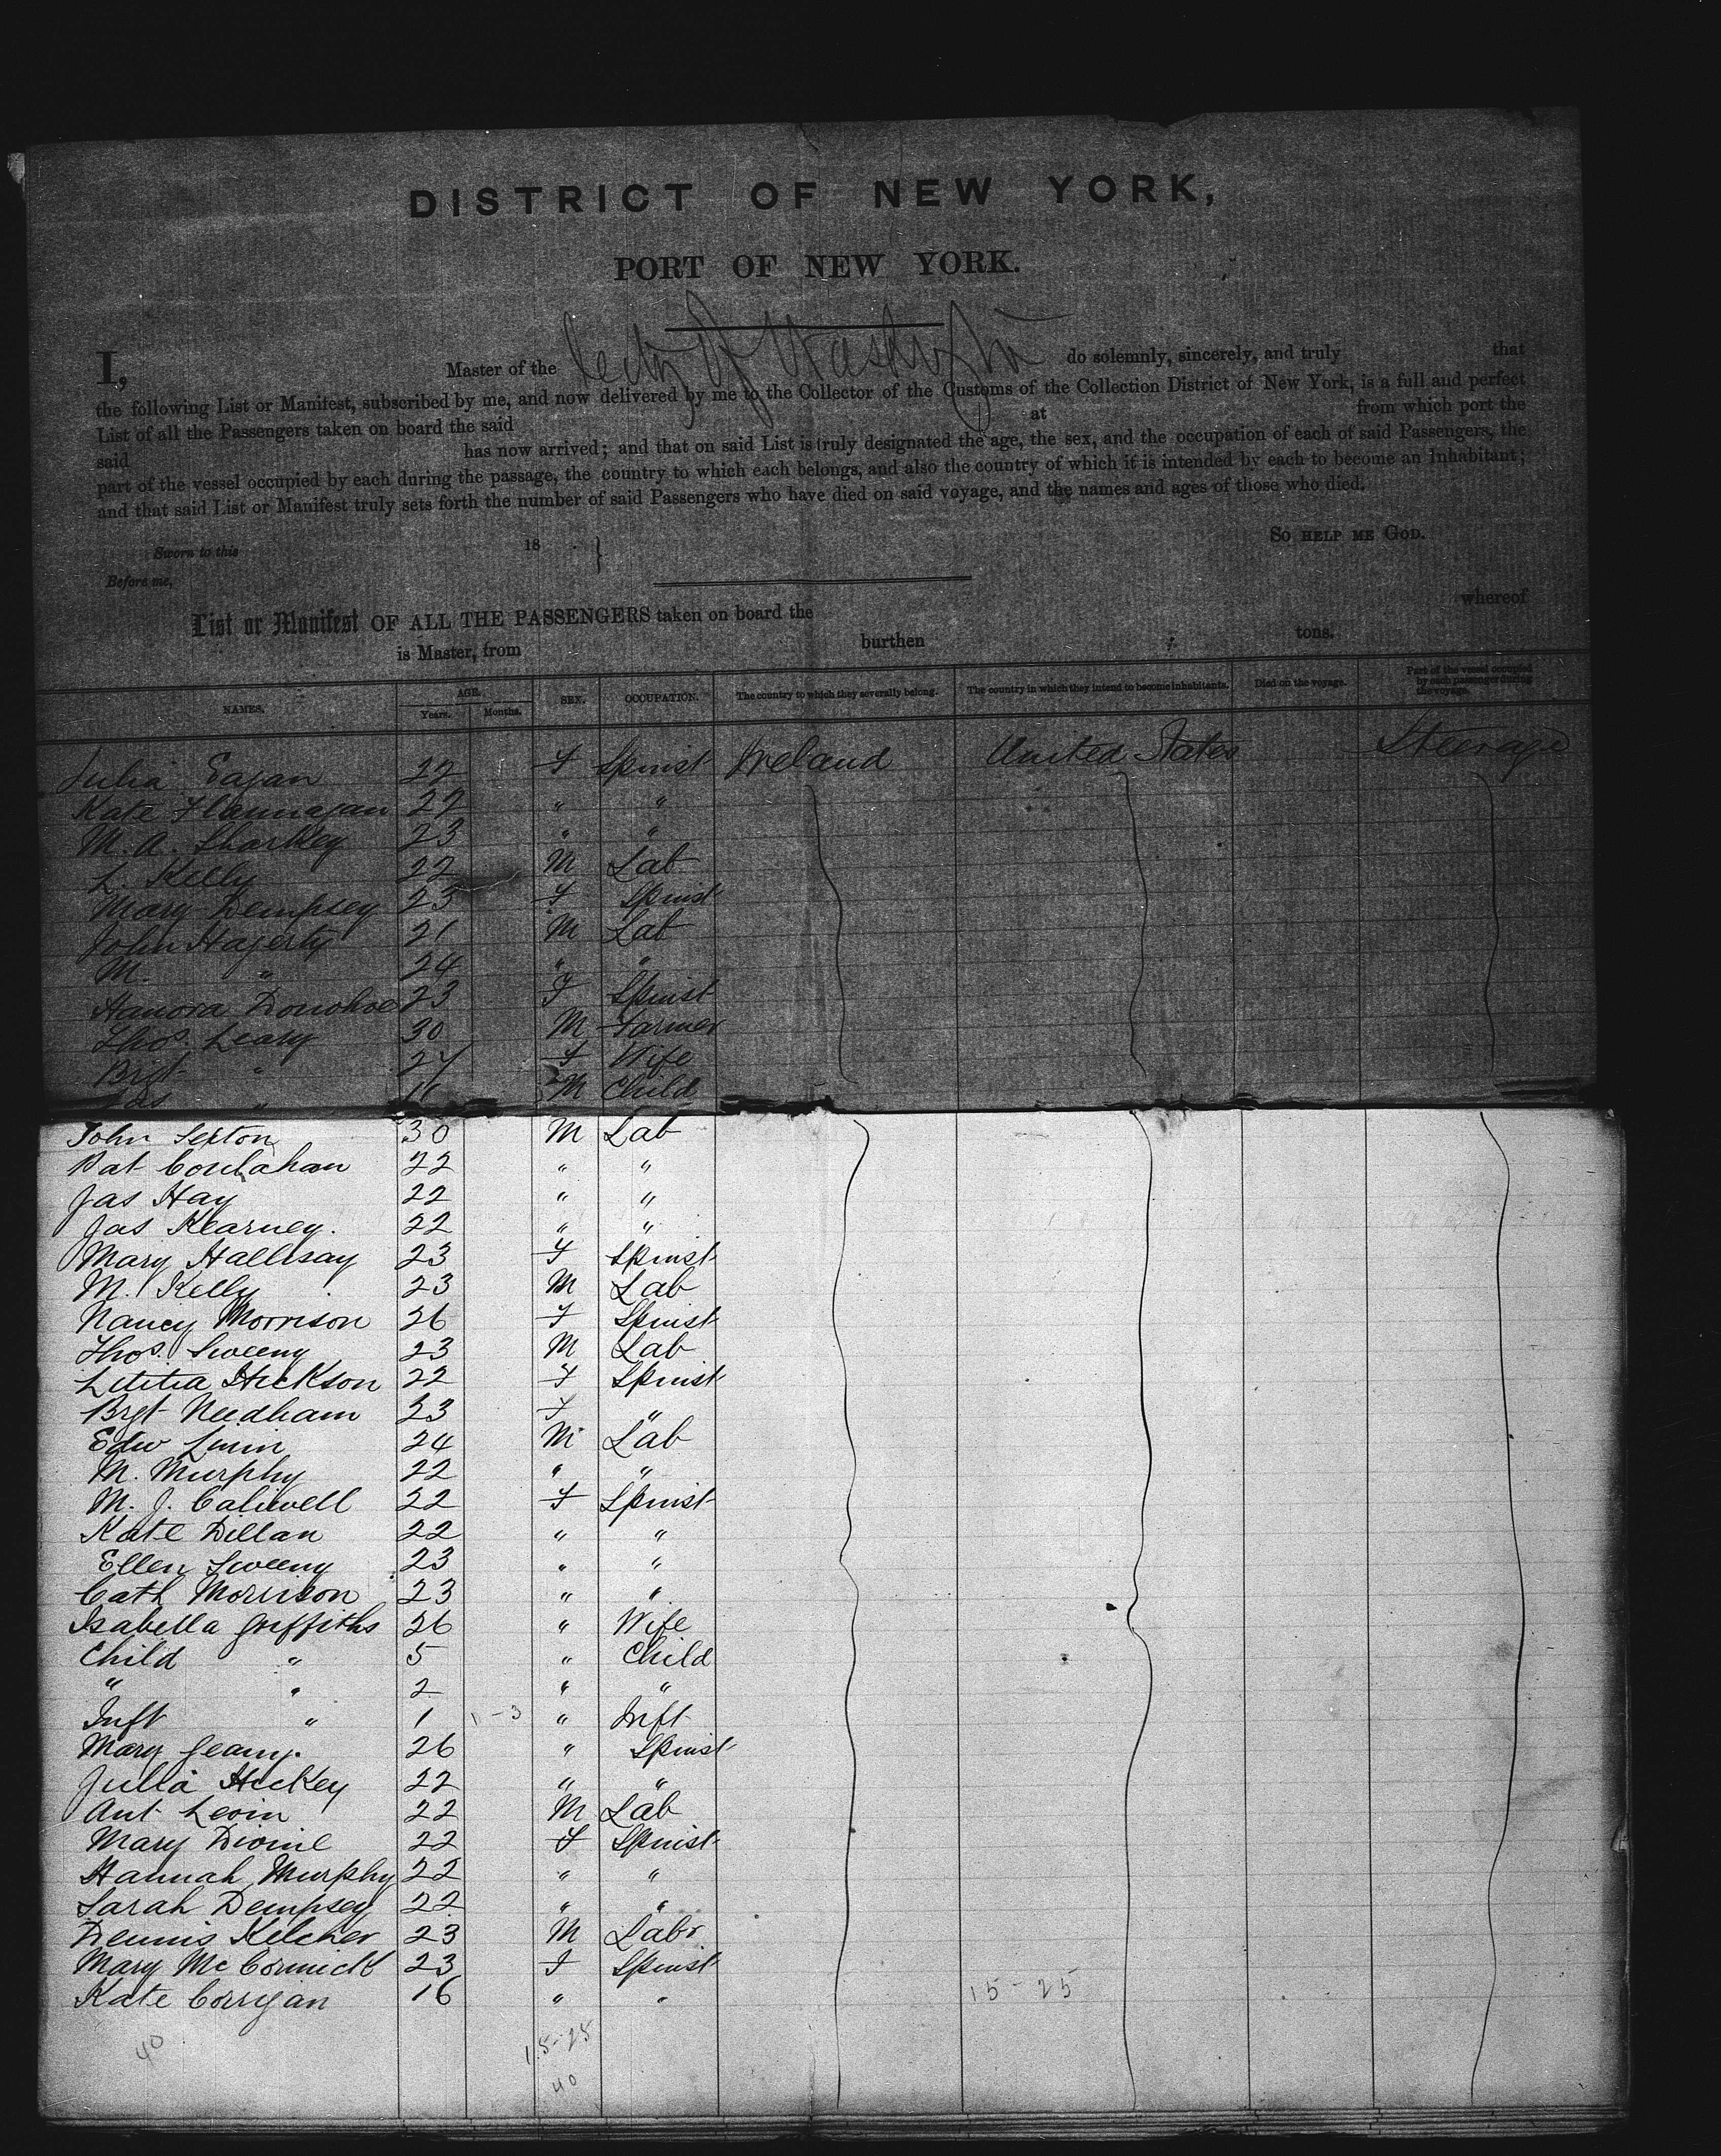 DISTRICT OF NEW YORK,
PORT OF NEW YORK.
I, Master of the City of Washington do solemnly, sincerely, and truly that
the following List or Manifest, subscribed by me, and now delivered by me to the Collector of the Customs of the Collection District of New York, is a full and perfect
List of all the Passengers taken on board the said at from which port the
said has now arrived; and that on said List is truly designated the age, the sex, and the occupation of each of said Passengers, the
part of the vessel occupied by each during the passage, the country to which each belongs, and also the country of which it is intended by each to become an Inhabitant;
and that said List or Manifest truly sets forth the number of said Passengers who have died on said voyage, and the names and ages of those who died.
So help me God.
Sworn to this 18
Before me,
List or Manifest OF ALL THE PASSENGERS taken on board the whereof
is Master, from burthen tons.
NAMES. AGE. Years. Months. SEX. OCCUPATION. The country to which they severally belong. The country in which they intend to become inhabitants. Died on the voyage. Part of the vessel occupied by each passenger during the voyage.
Julia Eagan 22 F Spinst Ireland United States Steerage
Kate Flannagan 22 " "
M. A. Sharkey 23 " "
L. Kelly 22 M Lab
Mary Dempsey 23 F Spinst
John Hagerty 21 M Lab
M. " 24 " "
Hanora Donohoe 23 F Spinst
Thos. Leary 30 M Farmer
Brgt " 27 F Wife
Jas " 11 M Child
John Sexton 30 M Lab
Pat Coulahan 22 " "
Jas Hay 22 " "
Jas Kearney. 22 " "
Mary Hallisay 23 F Spinst
M. Kelly 23 M Lab
Nancy Morrison 26 F Spinst
Thos. Sweeny 23 M Lab
Letitia Hickson 22 F Spinst
Brgt Needham 23 F "
Edw 24 M Lab
M. Murphy 22 " "
M. J. Caliwell 22 F Spinst
Kate Dillan 22 " "
Ellen Sweeny 23 " "
Cath Morrison 23 " "
Isabella Griffiths 26 " Wife
Child " 5 " Child
" " 2 " "
Inft " 1 1-3 " Inft
Mary Geany. 26 " Spinst
Julia Hickey 22 " "
Ant Levin 22 M Lab
Mary Divine 22 F Spinst
Hannah Murphy 22 " "
Sarah Dempsey 22 " "
Dennis Kelcher 23 M Labr
Mary McCormick 23 F Spinst
Kate Corrigan 16 " "
15-25
40 15-25
40